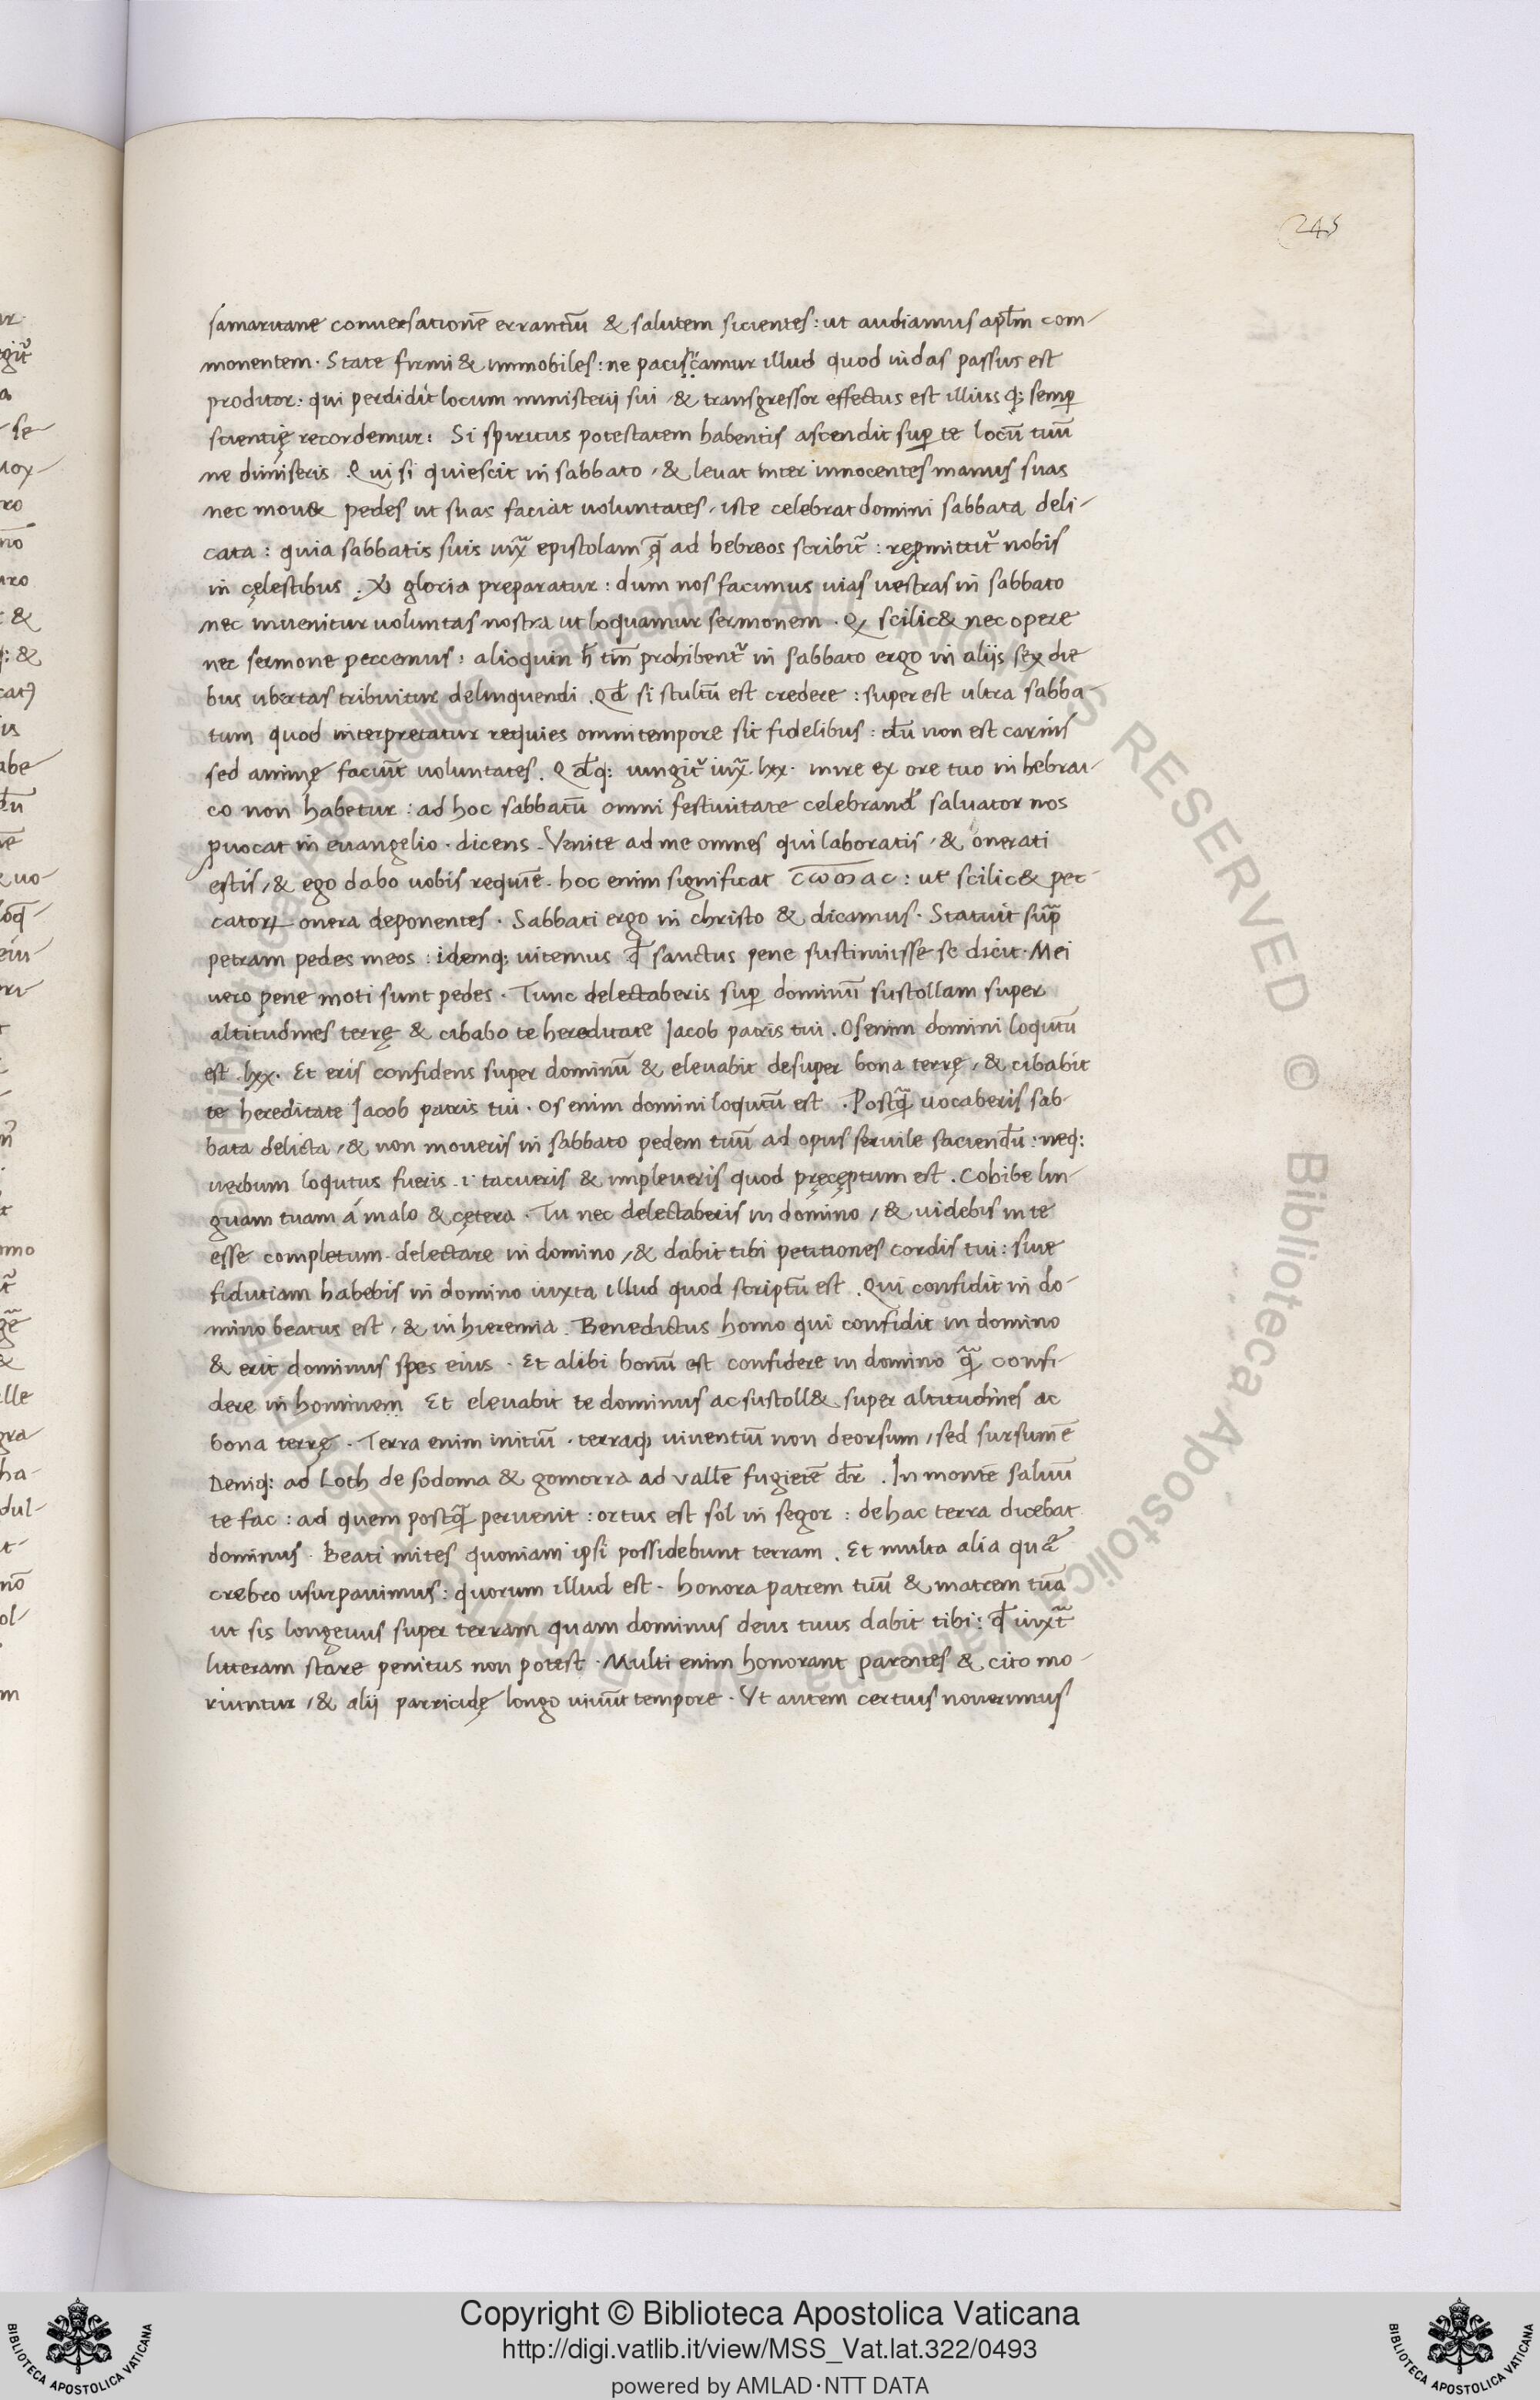 245
samaritanę conuersationē errantiū & salutem sicientes: ut audiamus apl̄m com-
monentem. State firmi & immobiles: ne paciscamur illud quod iudas passus est
proditor: qui perdidit locum ministerij sui & transgressor effectus est illius q; semp̲
scientię recordemur: Si spiritus potestatem habentis ascendit sup̲ te locū tuū
ne dimiseris. Qui si quiescit in sabbato, & leuat inter innocentes manus suas
nec mou& pedes ut suas faciat uoluntates, iste celebrat domini sabbata deli-
cata: quia sabbatis suis iux̄ epistolam q̄ ad hebreos scribit᷑: rep̲mittit᷑ nobis
in cęlestibus. gloria preparatur: dum nos facimus uias uestras in sabbato
nec inuenitur uoluntas nostra ut loquamur sermonem. scilic& nec opere
nec sermone peccemus: alioquin h̄ tm̄ prohibent᷑ in sabbato ergo in aliis sex die
bus ubertas tribuitur delinquendi. Qd̄ si stultū est credere: superest ultra sabba-
tum quod interpretatur requies omni tempore sit fidelibus: dū non est carnis
sed animę faciūt uoluntates. Qd̄q: iungit᷑ iux̄. lxx. mire ex ore tuo in hebrai-
co non habetur: ad hoc sabbatū omni festiuitate celebrand̄ saluator nos
p̲uocat in euangelio. dicens. Venite ad me omnes qui laboratis, & onerati
estis, & ego dabo uobis requiē. hoc enim significat : ut scilic& pec-
catoꝝ onera deponentes. Sabbati ergo in christo & dicamus. Statuit sup̄
petram pedes meos: idemq; uitemus qd̄ sanctus pene sustinuisse se dicit. Mei
uero pene moti sunt pedes. Tunc delectaberis sup̲ dominū sustollam super
altitudines terrę & cibabo te hereditate Jacob patris tui. Os enim domini loqutū
est. lxx. Et eris confidens super dominū & eleuabit desuper bona terrę, & cibabit
te hereditate Jacob patris tui. Os enim domini loqutū est. Postq̄ uocaberis sab-
bata delicta, & non moueris in sabbato pedem tuū ad opus seruile faciendū: neq:
uerbum loqutus fueris. i tacueris & impleueris quod pręcęptum est. Cohibe lin-
guam tuam á malo & cętera. Tu nec delectaberis in domino, & uidebis in te
esse completum. delectare in domino, & dabit tibi petitiones cordis tui: siue
fidutiam habebis in domino iuxta illud quod scriptū est. Qui confidit in do-
mino beatus est, & in hieremia. Benedictus homo qui confidit in domino
& erit dominus spes eius. Et alibi bonū est confidere in domino q̄ confi-
dere in hominem Et eleuabit te dominus ac sustoll& super altitudines ac
bona terrę. Terra enim initiū. terraq; uiuentiū non deorsum, sed sursum ē
Deniq: ad Loth de sodoma & gomorra ad vallē fugietē dr̄. In monte saluū
te fac: ad quem postq̄ peruenit: ortus est sol in segor: de hac terra dicebat
dominus. Beati mites quoniam ipsi possidebunt terram. Et multa alia quæ
crebro usurpauimus: quorum illud est. honora patrem tuū & matrem tuā
ut sis longęuus super terram quam dominus deus tuus dabit tibi: qd̄ iuxt̄
litteram stare penitus non potest. Multi enim honorant parentes & cito mo-
riuntur, & alij parricidę longo uiuūt tempore. Vt autem certius nouerimus
Copyright © Biblioteca Apostolica Vaticana
http://digi.vatlib.it/view/MSS_Vat.lat.322/0493
powered by AMLAD·NTT DATA
BIBLIOTECA APOSTOLICA VATICANA
BIBLIOTECA APOSTOLICA VATICANA